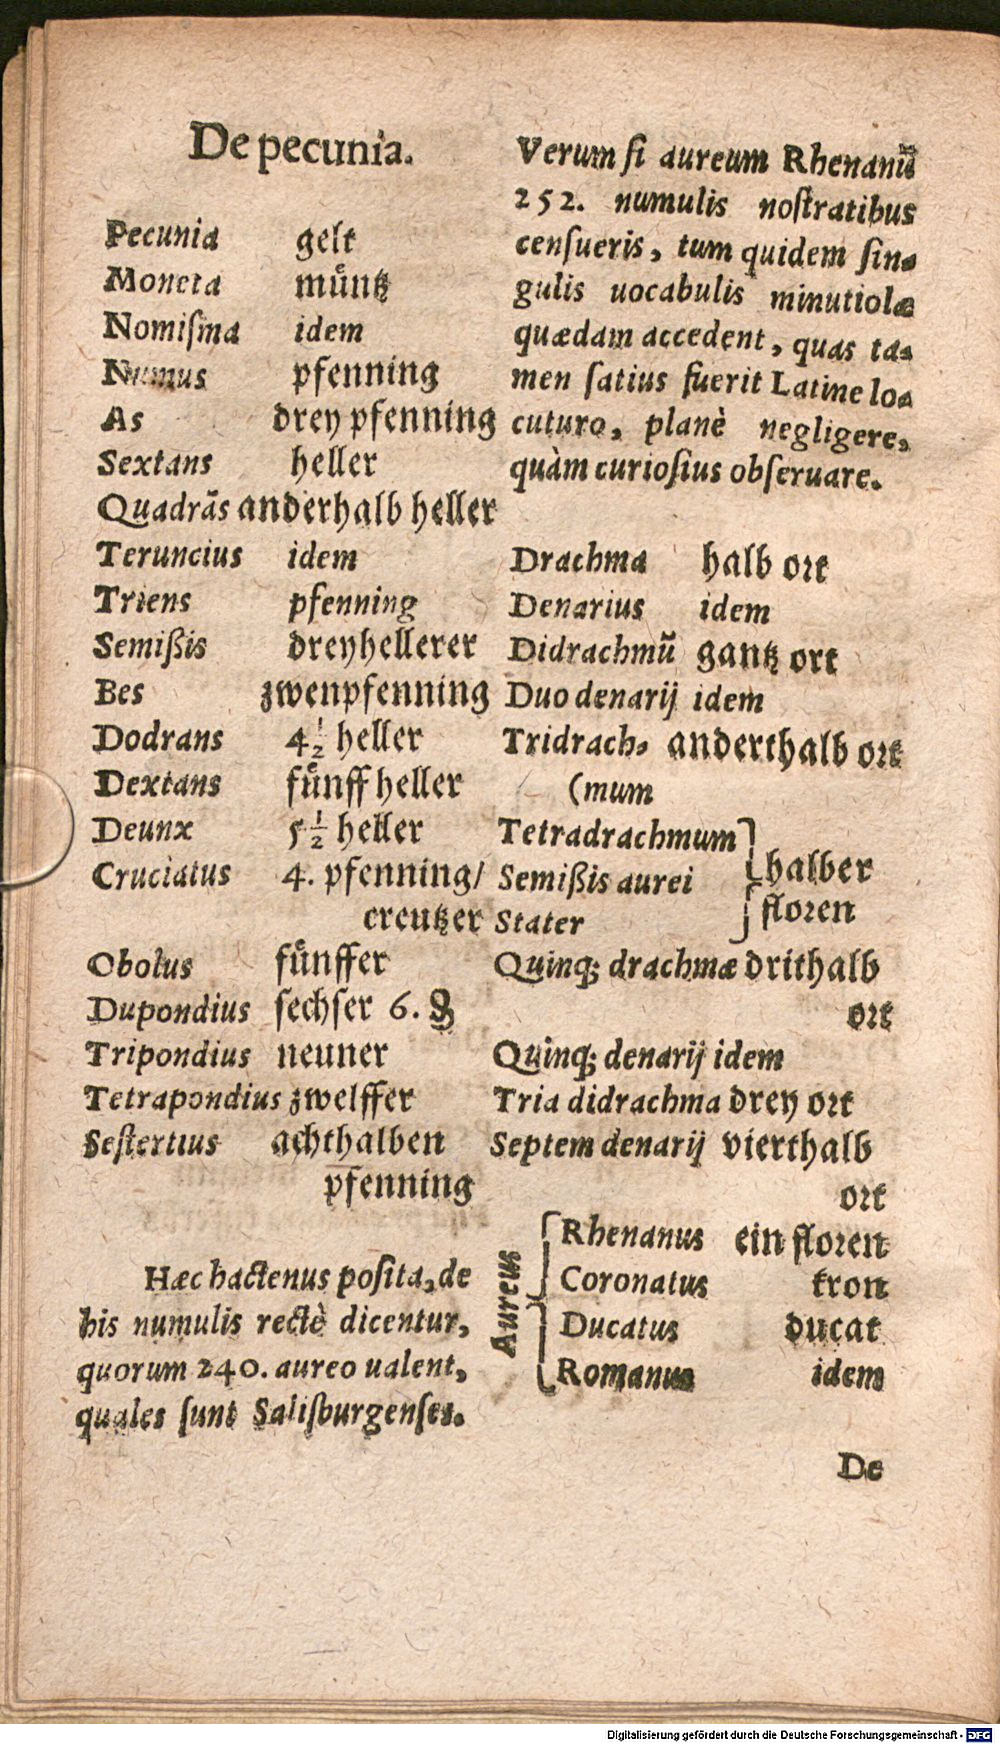 De pecunia.
Pecunia gelt
Moneta můntz
Nomiſma idem
Numus pfenning
As drey pfenning
Sextans heller
Quadrãs anderhalb heller
Teruncius idem
Triens pfenning
Semißis dreyhellerer
Bes zwenpfenning
Dodrans 4½ heller
Dextans fůnff heller
Deunx 5½ heller
Cruciatus 4. pfenning/
creutzer
Obolus fůnffer
Dupondius ſechſer 6. ₰
Tripondius neuner
Tetrapondius zwelffer
Seſtertius achthalben
pfenning
Hæc hactenus poſita, de
his numulis rectè dicentur,
quorum 240. aureo ualent,
quales ſunt Saliſburgenſes.
Verum ſi aureum Rhenanũ
252. numulis noſtratibus
cenſueris, tum quidem ſin-
gulis uocabulis minutiolæ
quædam accedent, quas ta-
men ſatius fuerit Latine lo-
cuturo, planè negligere,
quàm curioſius obſeruare.
Drachma halb ort
Denarius idem
Didrachmũ gantz ort
Duo denarij idem
Tridrach- anderthalb ort
(mum
Tetradrachmum
Semißis aurei
Stater
halber
floren
Quinq; drachmæ drithalb
ort
Quinq; denarij idem
Tria didrachma drey ort
Septem denarij vierthalb
ort
Aureus
Rhenanus ein floren
Coronatus kron
Ducatus ducat
Romanus idem
De
Digitalisierung gefördert durch die Deutsche Forschungsgemeinschaft - DFG